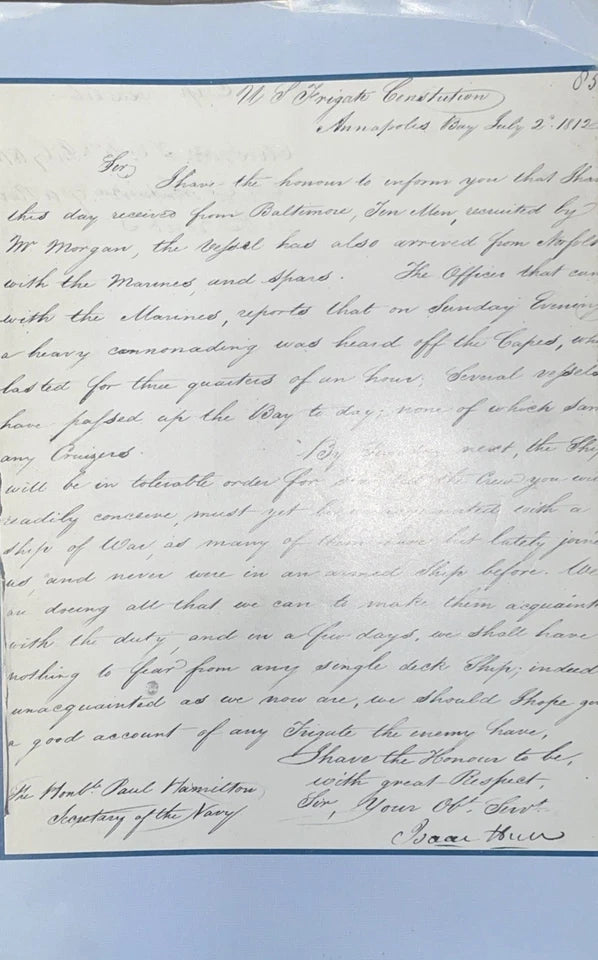 85
U S Frigate Constution
Annapolis Bay July 2d. 1812
Sir,
I have the honour to inform you that I have
this day received from Baltimore, Ten Men, recruited by
Mr Morgan, the Vessel has also arrived from Norfolk
with the Marines, and Spars. The Officer that cam
with the Marines, reports that on Sunday Evening
a heavy cannonading was heard off the Capes, whi
lasted for three quarters of an hour; Several vessels
have passed up the Bay to day; none of which saw
any Cruizers. By next, the Ship
will be in tolerable order for the Crew you wi
readily conceive, must yet be with a
Ship of War, as many of them have but lately joine
us, and never were in an armed Ship before. We
are doeing all that we can to make them acquaint
with the duty, and in a few days, we shall have
nothing to fear from any single deck Ship; indeed
unacquainted as we now are, we should I hope giv
a good account of any Frigate the enemy have,
I have the Honour to be,
with great Respect,
Sir, Your Obt. Servt.
Isaac Hull
The Honble. Paul Hamilton
Secretary of the Navy